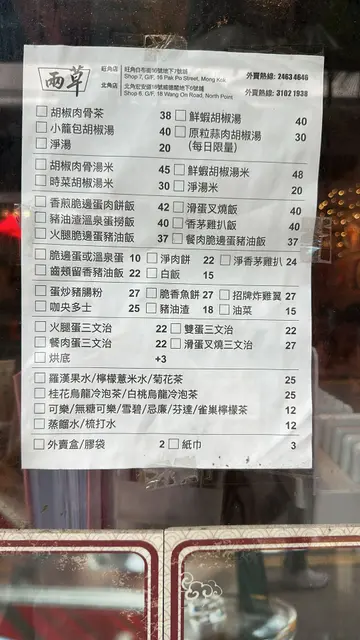 兩草
旺角店 旺角白布街16號地下7號舖
Shop 7, G/F, 16 Pak Po Street, Mong Kok
外賣熱線: 2463 4646
北角店
Shop 6, G/F, 18 Wang On Road, North Point
外賣熱線: 3102 1938
胡椒肉骨茶 38 鮮蝦胡椒湯 40
小籠包胡椒湯 40 原粒蒜肉胡椒湯 30
淨湯 20 (每日限量)
胡椒肉骨湯米 45 鮮蝦胡椒湯米 48
時菜胡椒湯米 30 淨湯米 20
香煎脆邊蛋肉餅飯 42 滑蛋叉燒飯 40
豬油渣溫泉蛋撈飯 40 香茅雞扒飯 40
火腿脆邊蛋豬油飯 37 餐肉脆邊蛋豬油飯 37
脆邊蛋或溫泉蛋 10 淨肉餅 22 淨香茅雞扒 24
齒頰留香豬油飯 22 白飯 15
蛋炒豬腸粉 27 脆香魚餅 27 招牌炸雞翼 27
咖央多士 25 豬油渣 18 油菜 15
火腿蛋三文治 22 雙蛋三文治 22
餐肉蛋三文治 22 滑蛋叉燒三文治 27
烘底 +3
羅漢果水/檸檬薏米水/菊花茶 25
桂花烏龍冷泡茶/白桃烏龍冷泡茶 25
可樂/無糖可樂/雪碧/忌廉/芬達/雀巢檸檬茶 12
蒸餾水/梳打水 12
外賣盒/膠袋 2 紙巾 3